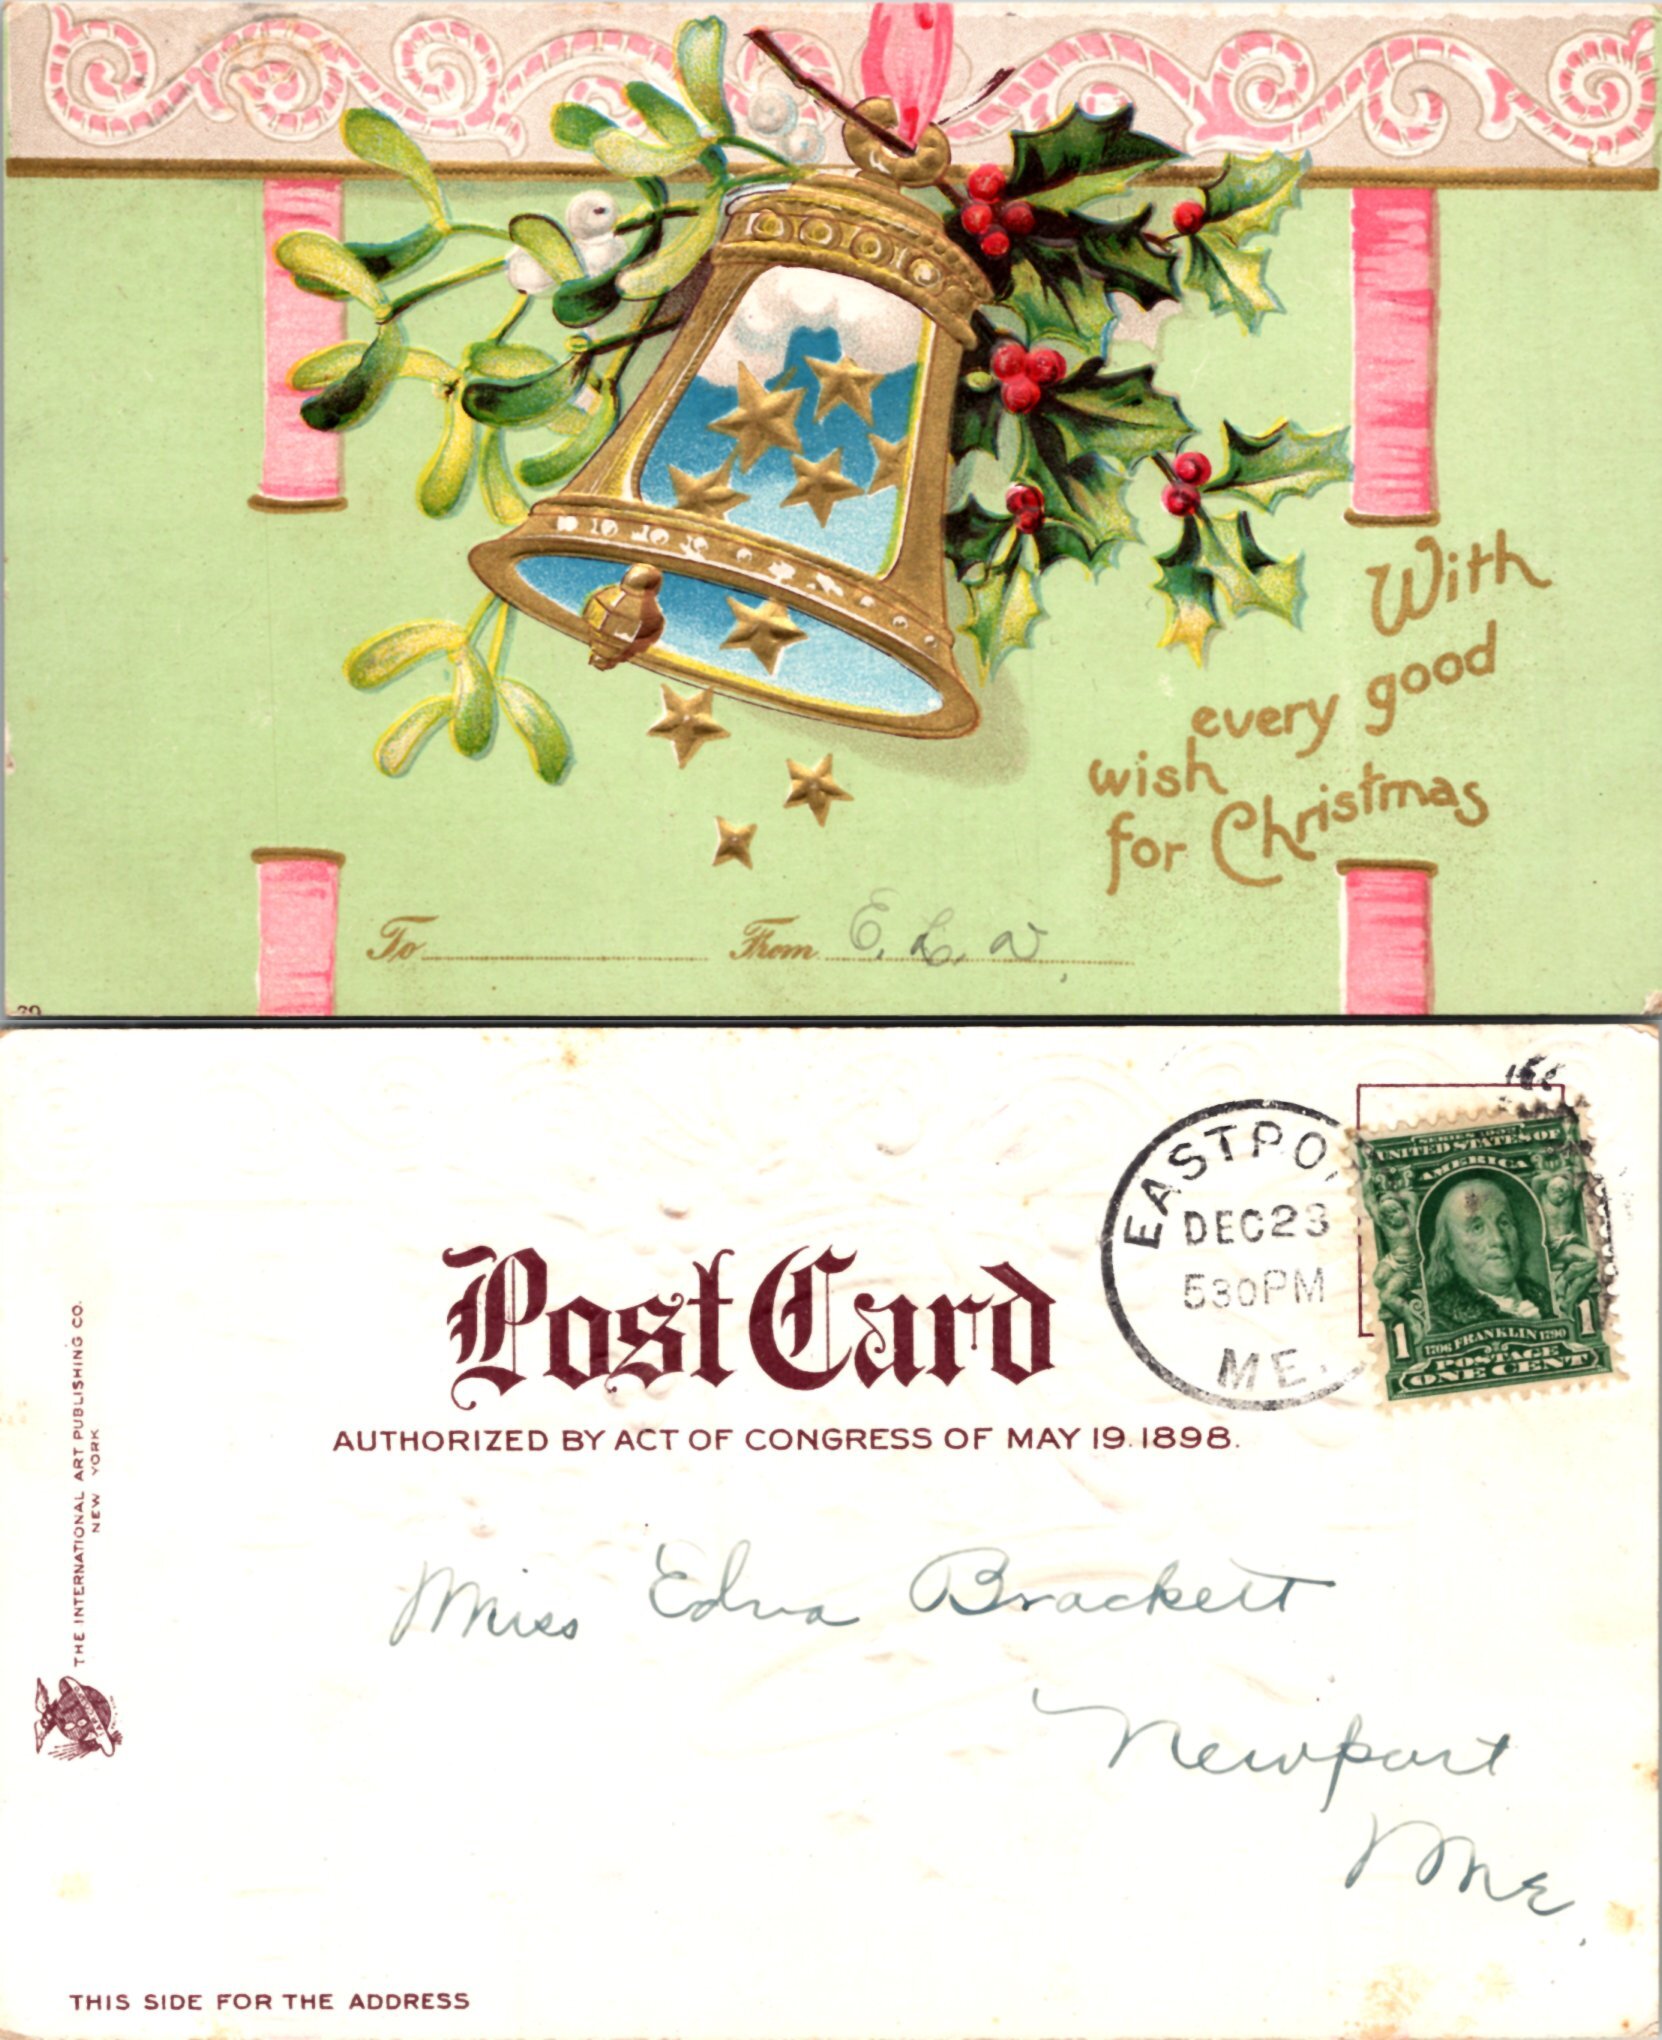 With
every good
wish
for Christmas
To From E. L. W.
THE INTERNATIONAL ART PUBLISHING CO.
NEW YORK
Post Card
AUTHORIZED BY ACT OF CONGRESS OF MAY 19. 1898.
EASTPO
DEC 23
530 PM
ME.
SERIES 1902
UNITED STATES OF
AMERICA
1706 FRANKLIN 1790
1 1
POSTAGE
ONE CENT
Miss Edna Brackett
Newport
Me.
THIS SIDE FOR THE ADDRESS